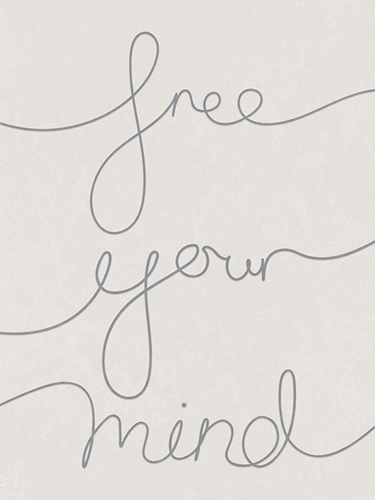 free
your
mind